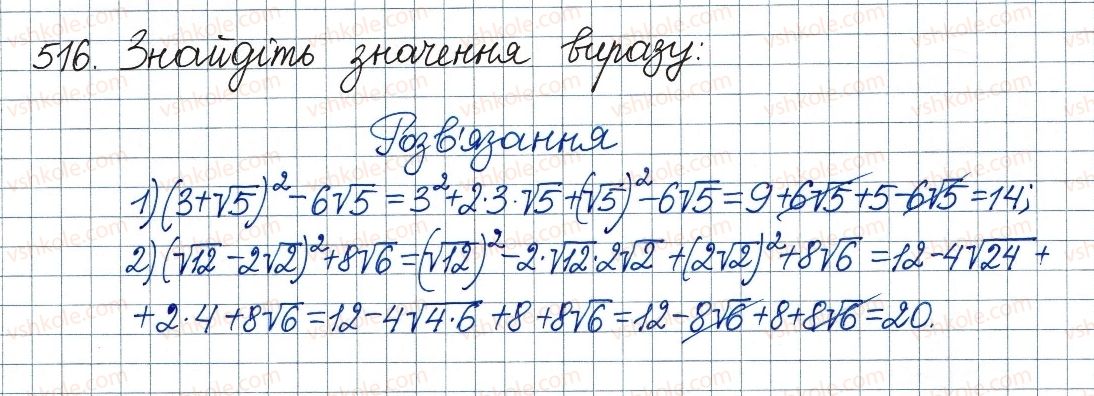 516. Знайдіть значення виразу:
Розв'язання
1) (3+√5)² - 6√5 = 3² + 2·3·√5 + (√5)² - 6√5 = 9 + 6√5 + 5 - 6√5 = 14;
2) (√12 - 2√2)² + 8√6 = (√12)² - 2·√12·2√2 + (2√2)² + 8√6 = 12 - 4√24 +
+ 2·4 + 8√6 = 12 - 4√4·6 + 8 + 8√6 = 12 - 8√6 + 8 + 8√6 = 20.
vshkole.com